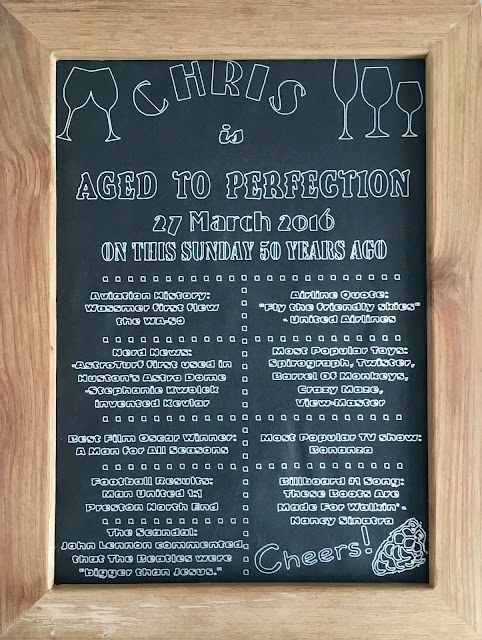 CHRIS
is
AGED TO PERFECTION
27 March 2016
ON THIS SUNDAY 50 YEARS AGO
Aviation History:
Wassmer first flew
the WA-50
Airline Quote:
"Fly the friendly skies"
- United Airlines
Nerd News:
-AstroTurf first used in
Huston's Astro Dome
-Stephanie Kwolek
invented Kevlar
Most Popular Toys:
Spirograph, Twister,
Barrel Of Monkeys,
Crazy Maze,
View-Master
Best Film Oscar Winner:
A Man for All Seasons
Most Popular TV show:
Bonanza
Football Results:
Man United 1:1
Preston North End
Billboard #1 Song:
These Boots Are
Made For Walkin' -
Nancy Sinatra
The Scandal:
John Lennon commented
that The Beatles were
"bigger than Jesus."
Cheers!